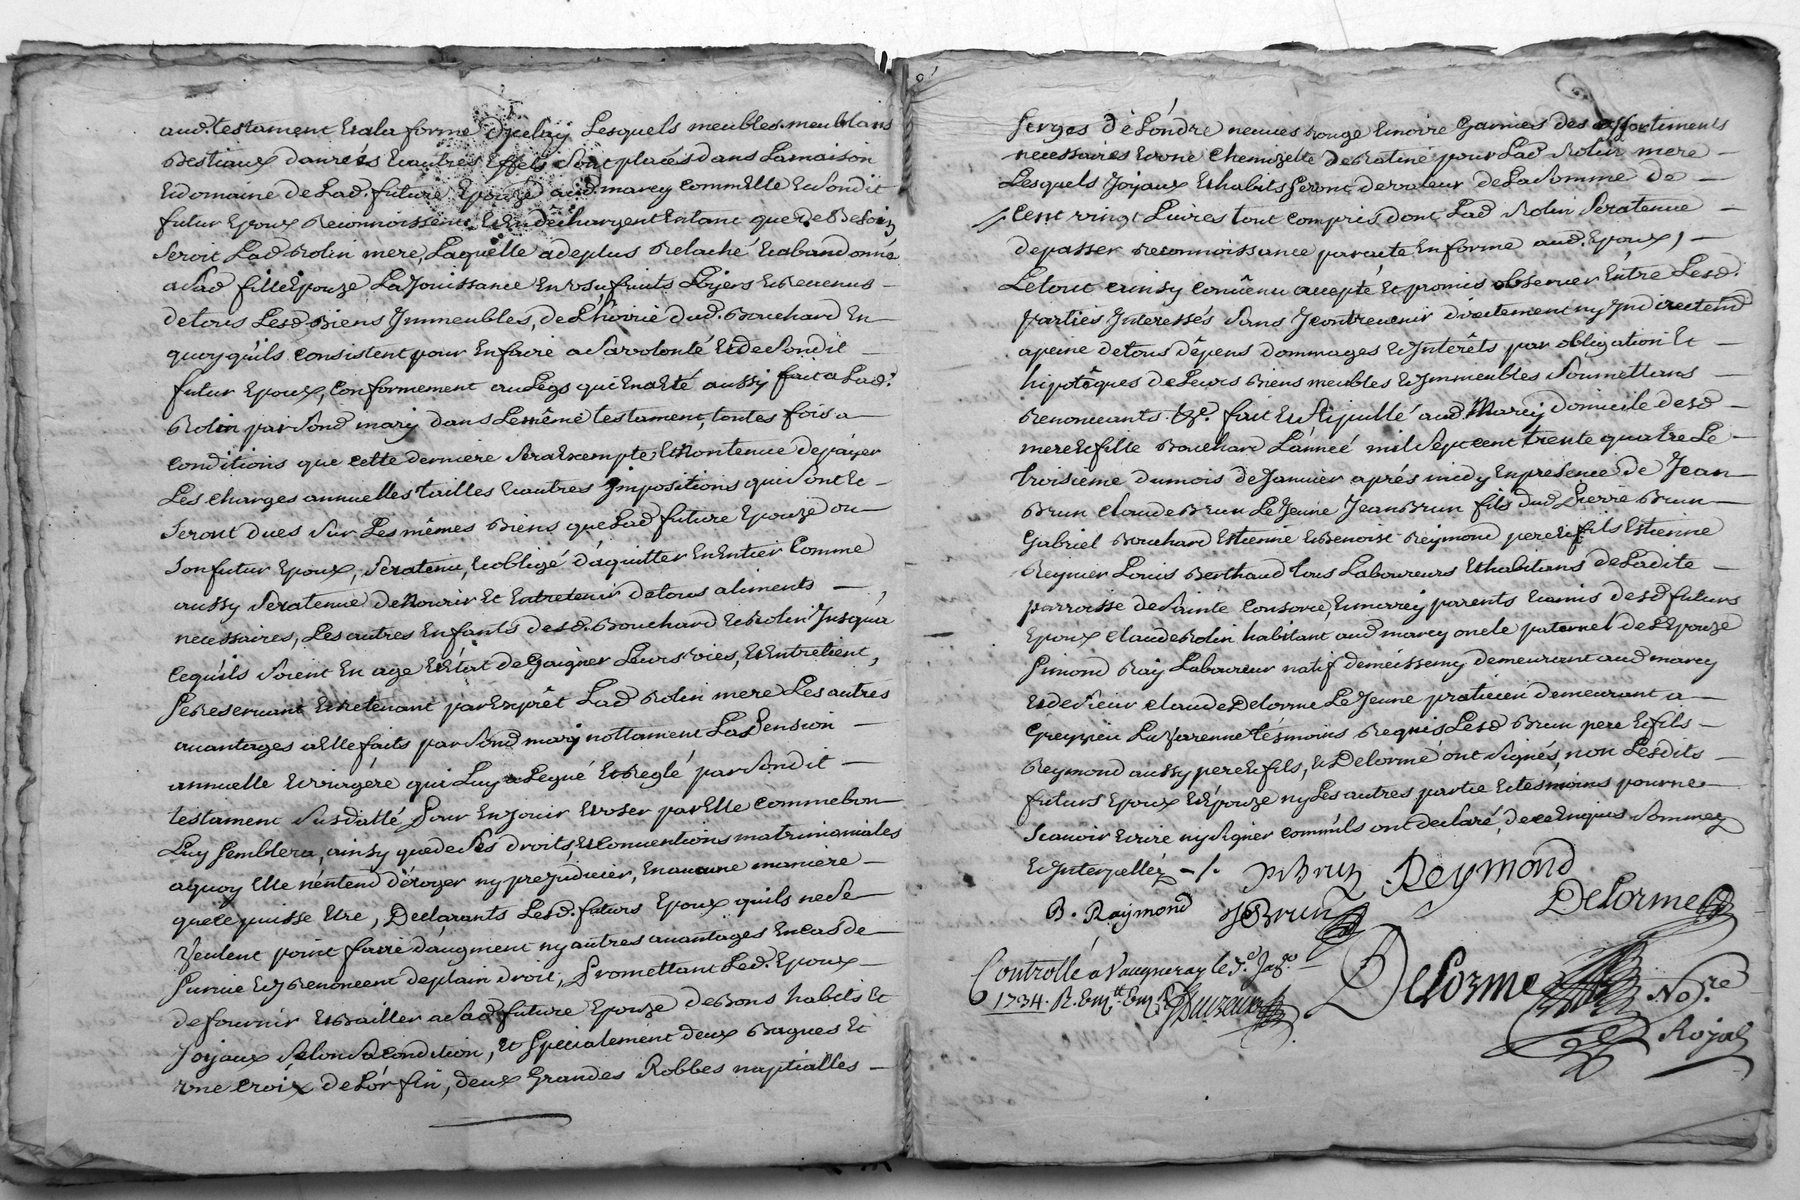 aud. testament et ala forme d'jceluy Lesquels meubles meublans
Bestiaux danrées et autres Effets Sont placés dans Lamaison
et domaine de Lad. future Epouze aud. marcy comme Elle et Sondit
futur Epoux Reconnoissent et En déchargent Entant que de Besoin
Seroit Lad. Rolin mere, Laquelle a deplus Relaché et abandonné
a Sad. fille Epouze La Jouissance En usufruits Loÿers et Revenus -
detous Lesd. Biens Jmmeubles, de L'hoirie dud. Bouchard En -
quoy qu'ils consistent pour En faire a Sa volonté et de Sondit -
futur Epoux, conformement au Legs qui En a Eté aussy fait a Lad.
Rolin par Sond. mary dans Le même testament, toutes fois a -
conditions que cette derniere Sera Exempte, et Non tenue depayer
Les charges annuelles tailles et autres Jmpositions qui Sont et -
Seront dues Sur Les mêmes Biens que Lad. future Epouze ou -
Son futur Epoux, Sera tenu, et obligé d'aquitter En Entier Comme
aussy Sera tenue de Nourir et Entretenir de tous aliments -,
necessaires, Les autres Enfants desd. Bouchard et Rolin Jusqu'a
cequ'ils Soient En age et Etat de Gaigner Leurs vies, et Entretient,
Se Reservant et Retenant par Exprêt Lad. Rolin mere Les autres
avantages a Elle faits par Sond. mary nottament La Pension -
annuelle et viagére qui Luy a Legué et Reglé par Sondit -
testament Susdatté, Pour En Jouir et user par Elle comme bon
Luy Semblera, ainsy que de Ses droits, et Conventions matrimoniales
a quoy Elle n'entend déroger ny prejudicier, En aucune maniere -
que ce puisse Etre, Declarants Lesd. futurs Epoux qu'ils ne Se -
Veulent point faire d'augment ny autres avantages En cas de -
Survie et y Renoncent de plain droit, Promettant Led. Epoux -
de fournir et Bailler a Sad. future Epouze de Bons habits et
Joÿaux Selon Sa condition, et Specialement deux Bagues et
une croix de L'or fin, deux Grandes Robbes nuptialles -
Serges de Londre neuves rouge et noire Garnies des assortiments
necessaires et une chemizette de Ratine pour Lad. Rolin mere -
Lesquels Joyaux et habits Seront de valeur de La Somme de -
Cent vingt Livres tout compris dont Lad. Rolin Sera tenue -
depasser Reconnoissance parcette En forme aud. Epoux, -
Le tout ainsy convenu accepté et promis observer Entre Lesd.
parties Interessés Sans J contrevenir directement ny Jndirectemt
a peine de tous dépens dommages et Jnterêts par obligation et -
hipotêques de Leurs Biens meubles et Jmmeubles Soumettans -
Renonceants &c. fait et Stipullé aud. Marcy domicile desd. -
mere et fille Bouchard L'année mil Sept cent trente quatre Le -
troisieme du mois de Janvier aprés midy En presence de Jean -
Brun Claude Brun Le Jeune Jean Brun fils dud. Pierre Brun -
Gabriel Bouchard Etienne et Benoist Reymond pere et fils Estienne
Reynier Louis Berthaud tous Laboureurs et habitans de Ladite -
parroisse de Sainte Consorce, et marcy parents et amis desd. futurs
Epoux Claude Rolin habitant aud. marcy oncle paternel de L'Epouze
Simond Ray Laboureur natif de messemy demeurant aud. marcy
et de Sieur Claude Delorme Le Jeune praticien demeurant a -
Grezieu La Varenne tésmoins Requis Lesd. Brun pere et fils -
Reymond aussy pere et fils, et Delorme ont Signés, non Lesdits -
futurs Epoux et Epouze ny Les autres partie et tesmoins pour ne -
Scavoir Ecrire ny Signer comm'ils ont declaré, de ce Enquis Sommez
et Jnterpellez -/. Reymond
B. Raymond JBrun Delorme
Controllé à Vaugneray le 5e. Jano. Delorme Nore.
1734. R. Royal